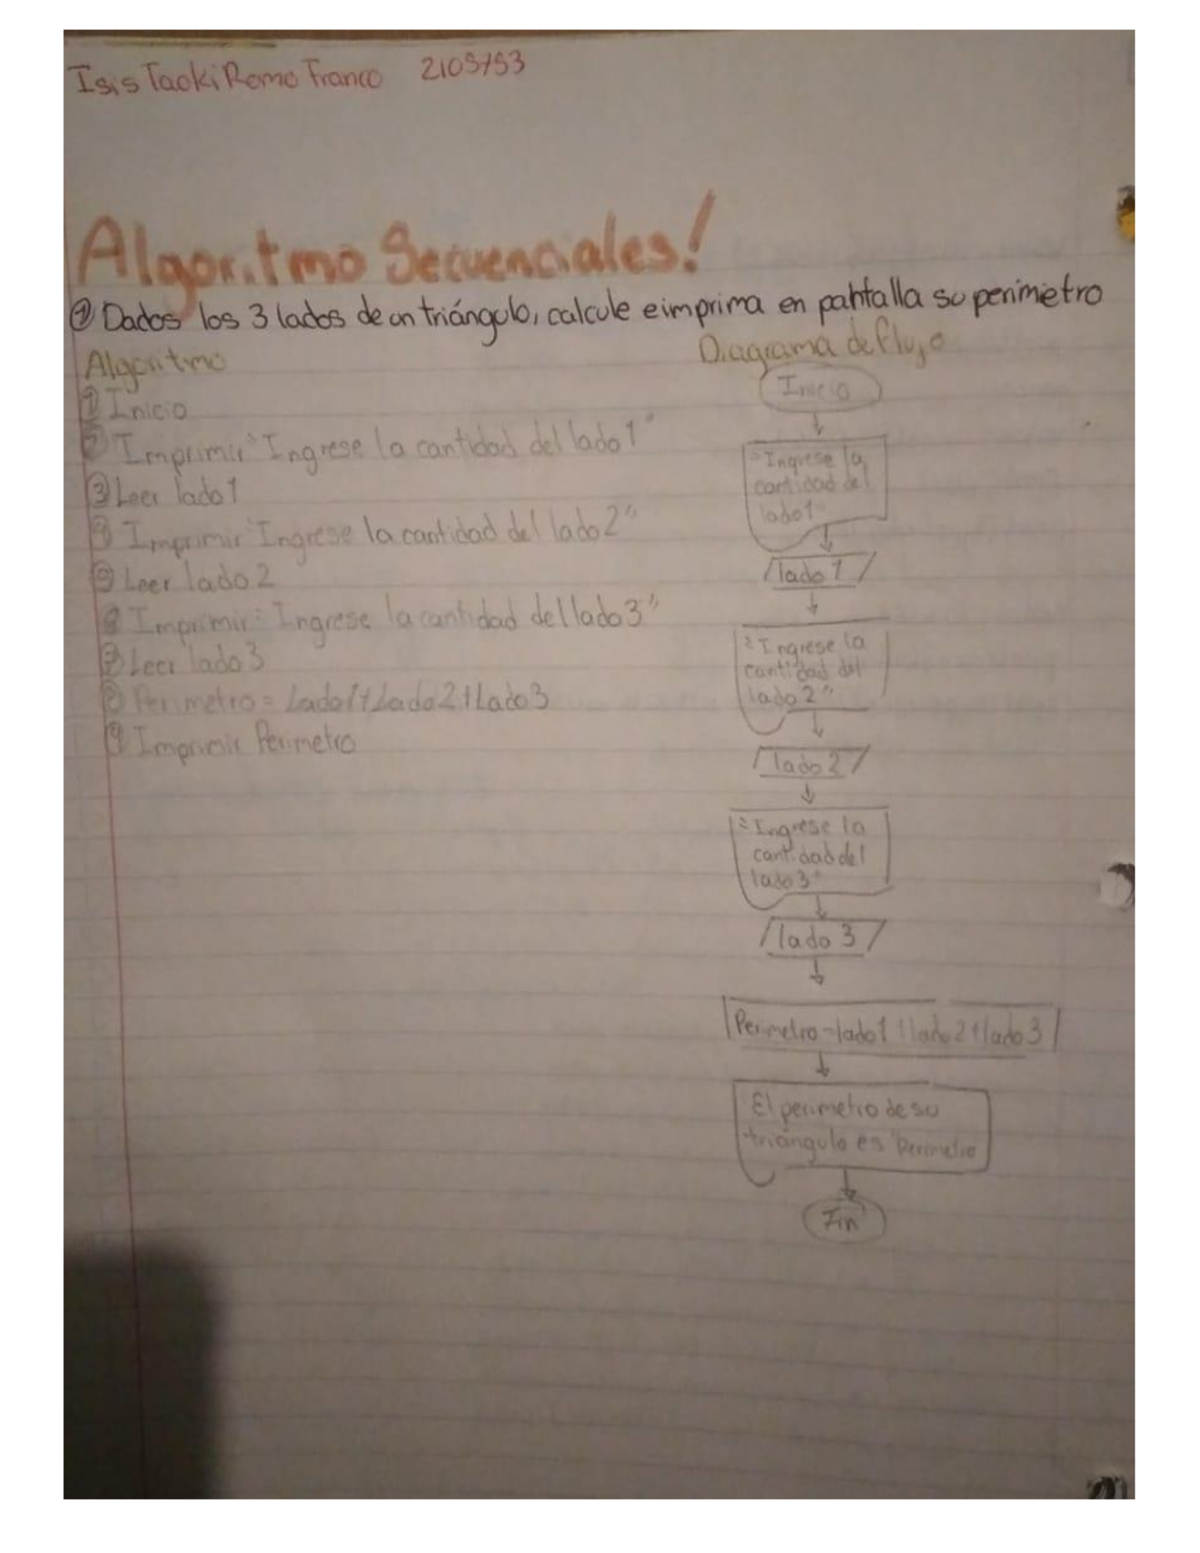 Isis Taoki Romo Franco 2105753
Algoritmo Secuenciales!
① Dados los 3 lados de un triángulo, calcule e imprima en pantalla su perimetro
Algoritmo
① Inicio
② Imprimir "Ingrese la cantidad del lado 1"
③ Leer lado 1
④ Imprimir "Ingrese la cantidad del lado 2"
⑤ Leer lado 2
⑥ Imprimir "Ingrese la cantidad del lado 3"
⑦ Leer lado 3
⑧ Perimetro = Lado1+Lado2+Lado3
⑨ Imprimir Perimetro
Diagrama de flujo
Inicio
"Ingrese la
cantidad del
lado 1"
lado 1
"Ingrese la
cantidad del
lado 2"
lado 2
"Ingrese la
cantidad del
lado 3"
lado 3
Perimetro = lado1+lado2+lado3
El perimetro de su
triángulo es "Perimetro
Fin